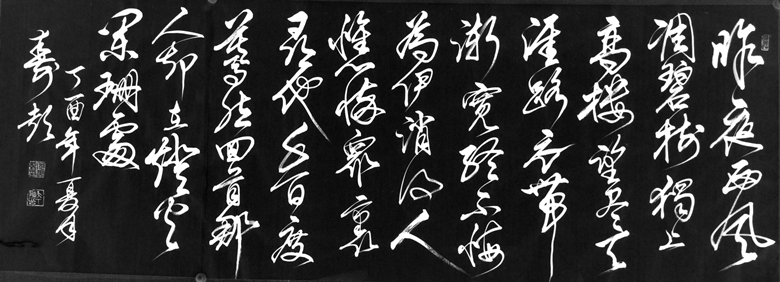 昨夜西風
凋碧樹獨上
高樓望盡天
涯路衣帶
漸寬終不悔
為伊消得人
憔悴眾裏
尋他千百度
驀然回首那
人却在燈火
闌珊處
丁酉年夏月
壽彭